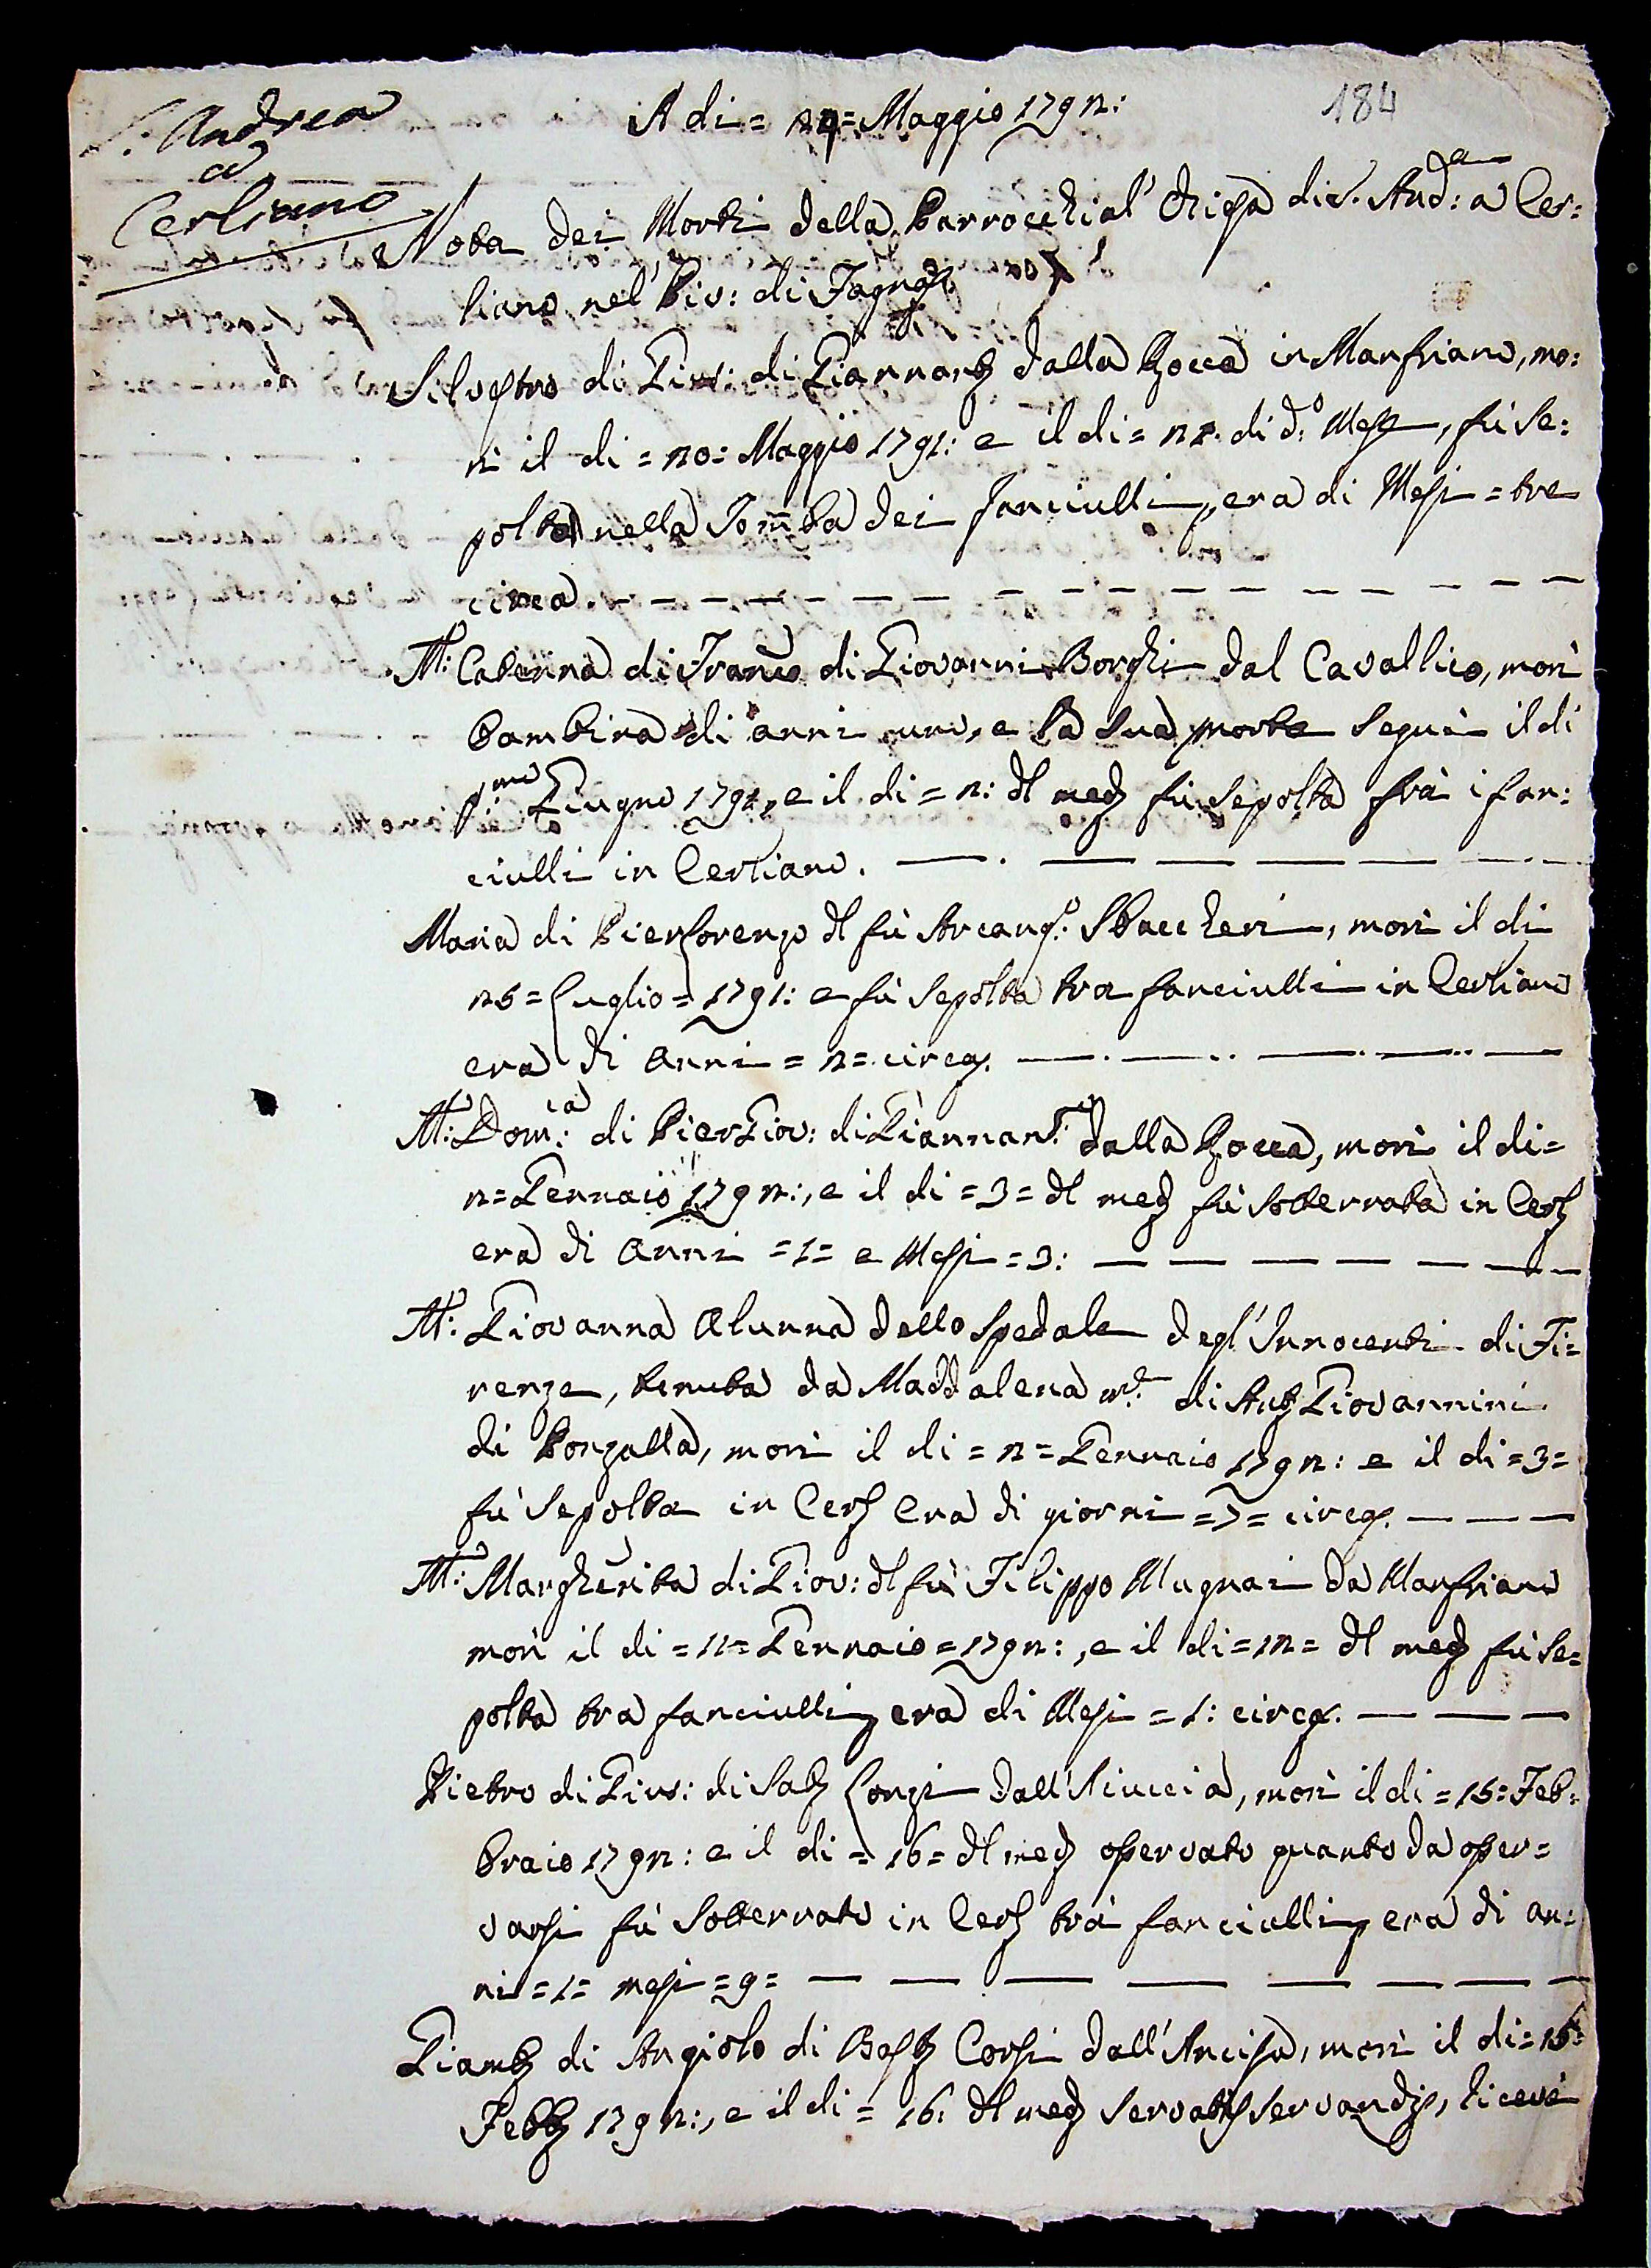 S: Andrea
a
Cerliano
A di = 29 = Maggio 1792:
184
Nota dei Morti della Parrocchial' Chiesa di S. And:a a Cer:
liano, nel' Piv: di Fagna
Silvestro di Giov: di Giannant dalla Rocca in Manfriano, mo:
ri il di = 20: Maggio 1791: e il di = 21. di d:o Mese, fù Se:
polto nella Tomba dei fanciulli, era di Mesi = tre
circa.
M: Caterina di Franco di Giovanni Borghi dal Cavallico, morì
bambina di anni uno, e la sua morte seguì il di
p:mo Giugno 1791, e il di = 2: dl med fù Sepolta frà i fan:
ciulli in Cerliano.
Maria di Pier Lorenzo dl fù Arcang:o Sbaccheri, morì il di
26 = Luglio = 1791: e fù Sepolta tra fanciulli in Cerliano
era di Anni = 2 = circa.
M: Dom:ca di Pier Giov: di Giannant: dalla Rocca, morì il di =
2 = Gennaio 1792:, e il di = 3 = dl med fù Sotterrata in Cerl
era di Anni = 1 = e Mesi = 3:
M: Giovanna Alunna dello Spedale degl' Innocenti di Fi =
renze, tenuta da Maddalena m:e di Ant Giovannini
di Ponzalla, morì il di = 2 = Gennaio 1792: e il di = 3 =
fù Sepolta in Cerl era di giorni = 7 = circa.
M: Margherita di Giov: dl fù Filippo Mugnai da Manfriano
morì il di = 11 = Gennaio = 1792:, e il di = 12 = dl med fù Se =
polta tra fanciulli, era di Mesi = 1: circa.
Pietro di Giov: di Salv Conzi dall' Aiuccia, morì il di = 15: Feb =
braio 1792: e il di = 16 = dl med osservato quanto da osser =
varsi fù Sotterrato in Cerl trà fanciulli, era di an:
ni = 1 = mesi = 9 =
Giamb di Angiolo di Bast Corsi dall' Ancisa, morì il di = 15:
Febb 1792:, e il di = 16: dl med Servatis Servandis, ricevè